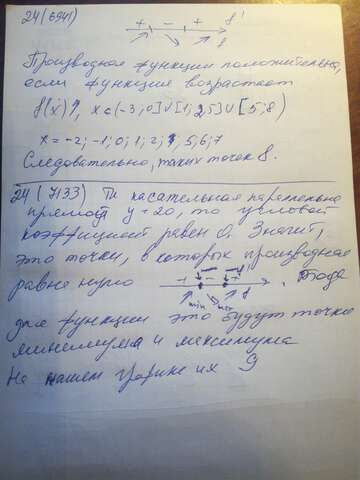 24(6941) + - + f'
f
Производная функции положительна,
если функция возрастает
f(x)↑, x∈(-3;0]∪[1;2,5]∪[5;8)
x = -2; -1; 0; 1; 2; 5; 6; 7
Следовательно, таких точек 8.
24(7133) Тк касательная параллельна
прямой y = 20, то угловой
коэффициент равен 0. Значит,
это точки, в которых производная
равна нулю f' min f. Тогда
для функции это будут точки
минимума и максимума
На нашем графике их 9